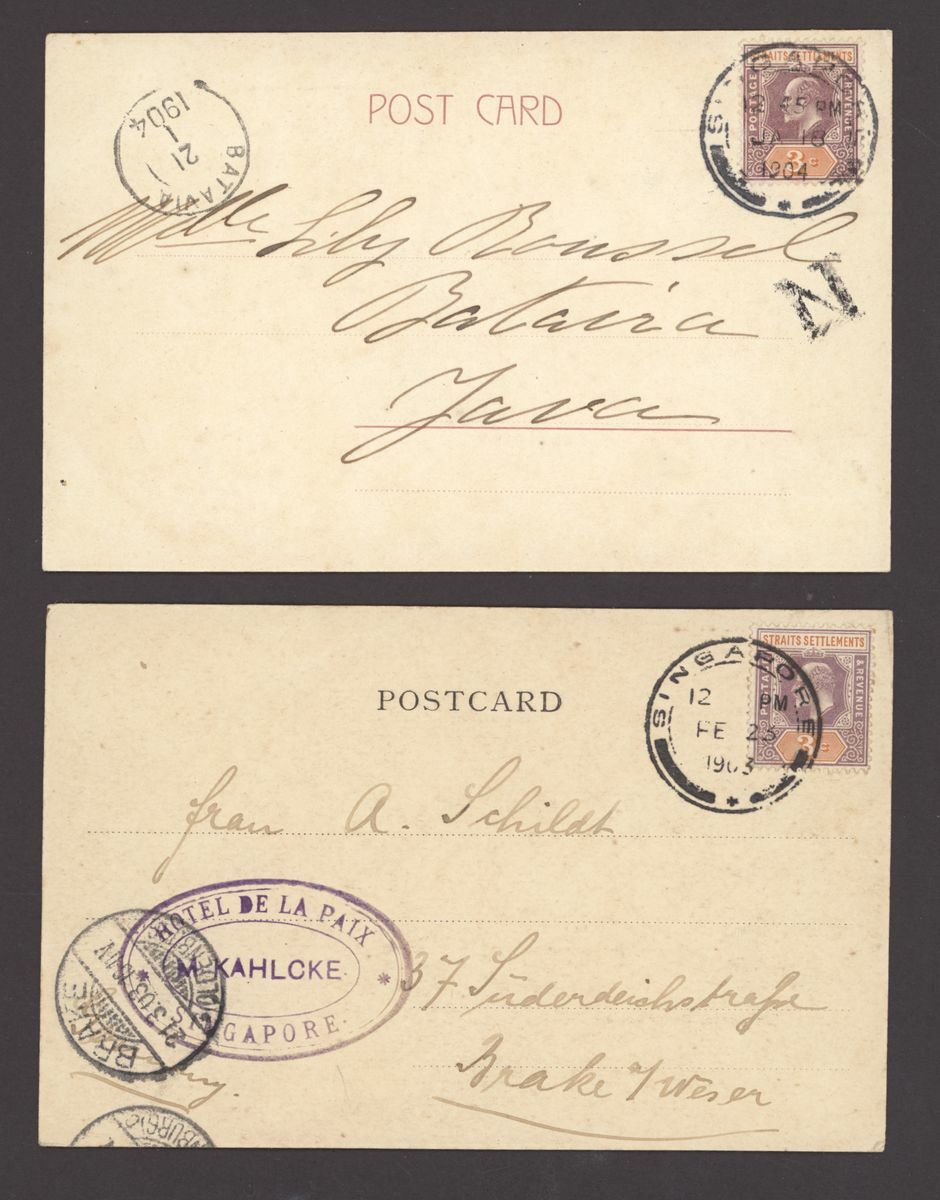 POST CARD
STRAITS SETTLEMENTS
POSTAGE & REVENUE
3c
SINGAPORE
12 45 PM
JA 16
1904
BATAVIA
21
1
1904
Mlle Lily Roussel
Batavia
Java
N
POSTCARD
STRAITS SETTLEMENTS
POSTAGE & REVENUE
3c
SINGAPORE
12 PM
FE 23
1903
Frau A. Schildt
HOTEL DE LA PAIX
M. KAHLCKE
* *
SINGAPORE.
BRAKE
21.3.03
37 Süderdeichstraße
Brake a/Weser